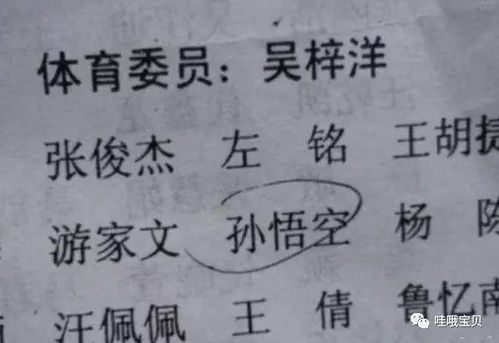 体育委员：吴梓洋
张俊杰 左 铭 王胡捷
游家文 孙悟空 杨 陈
汪佩佩 王 倩 鲁忆南
哇哦宝贝